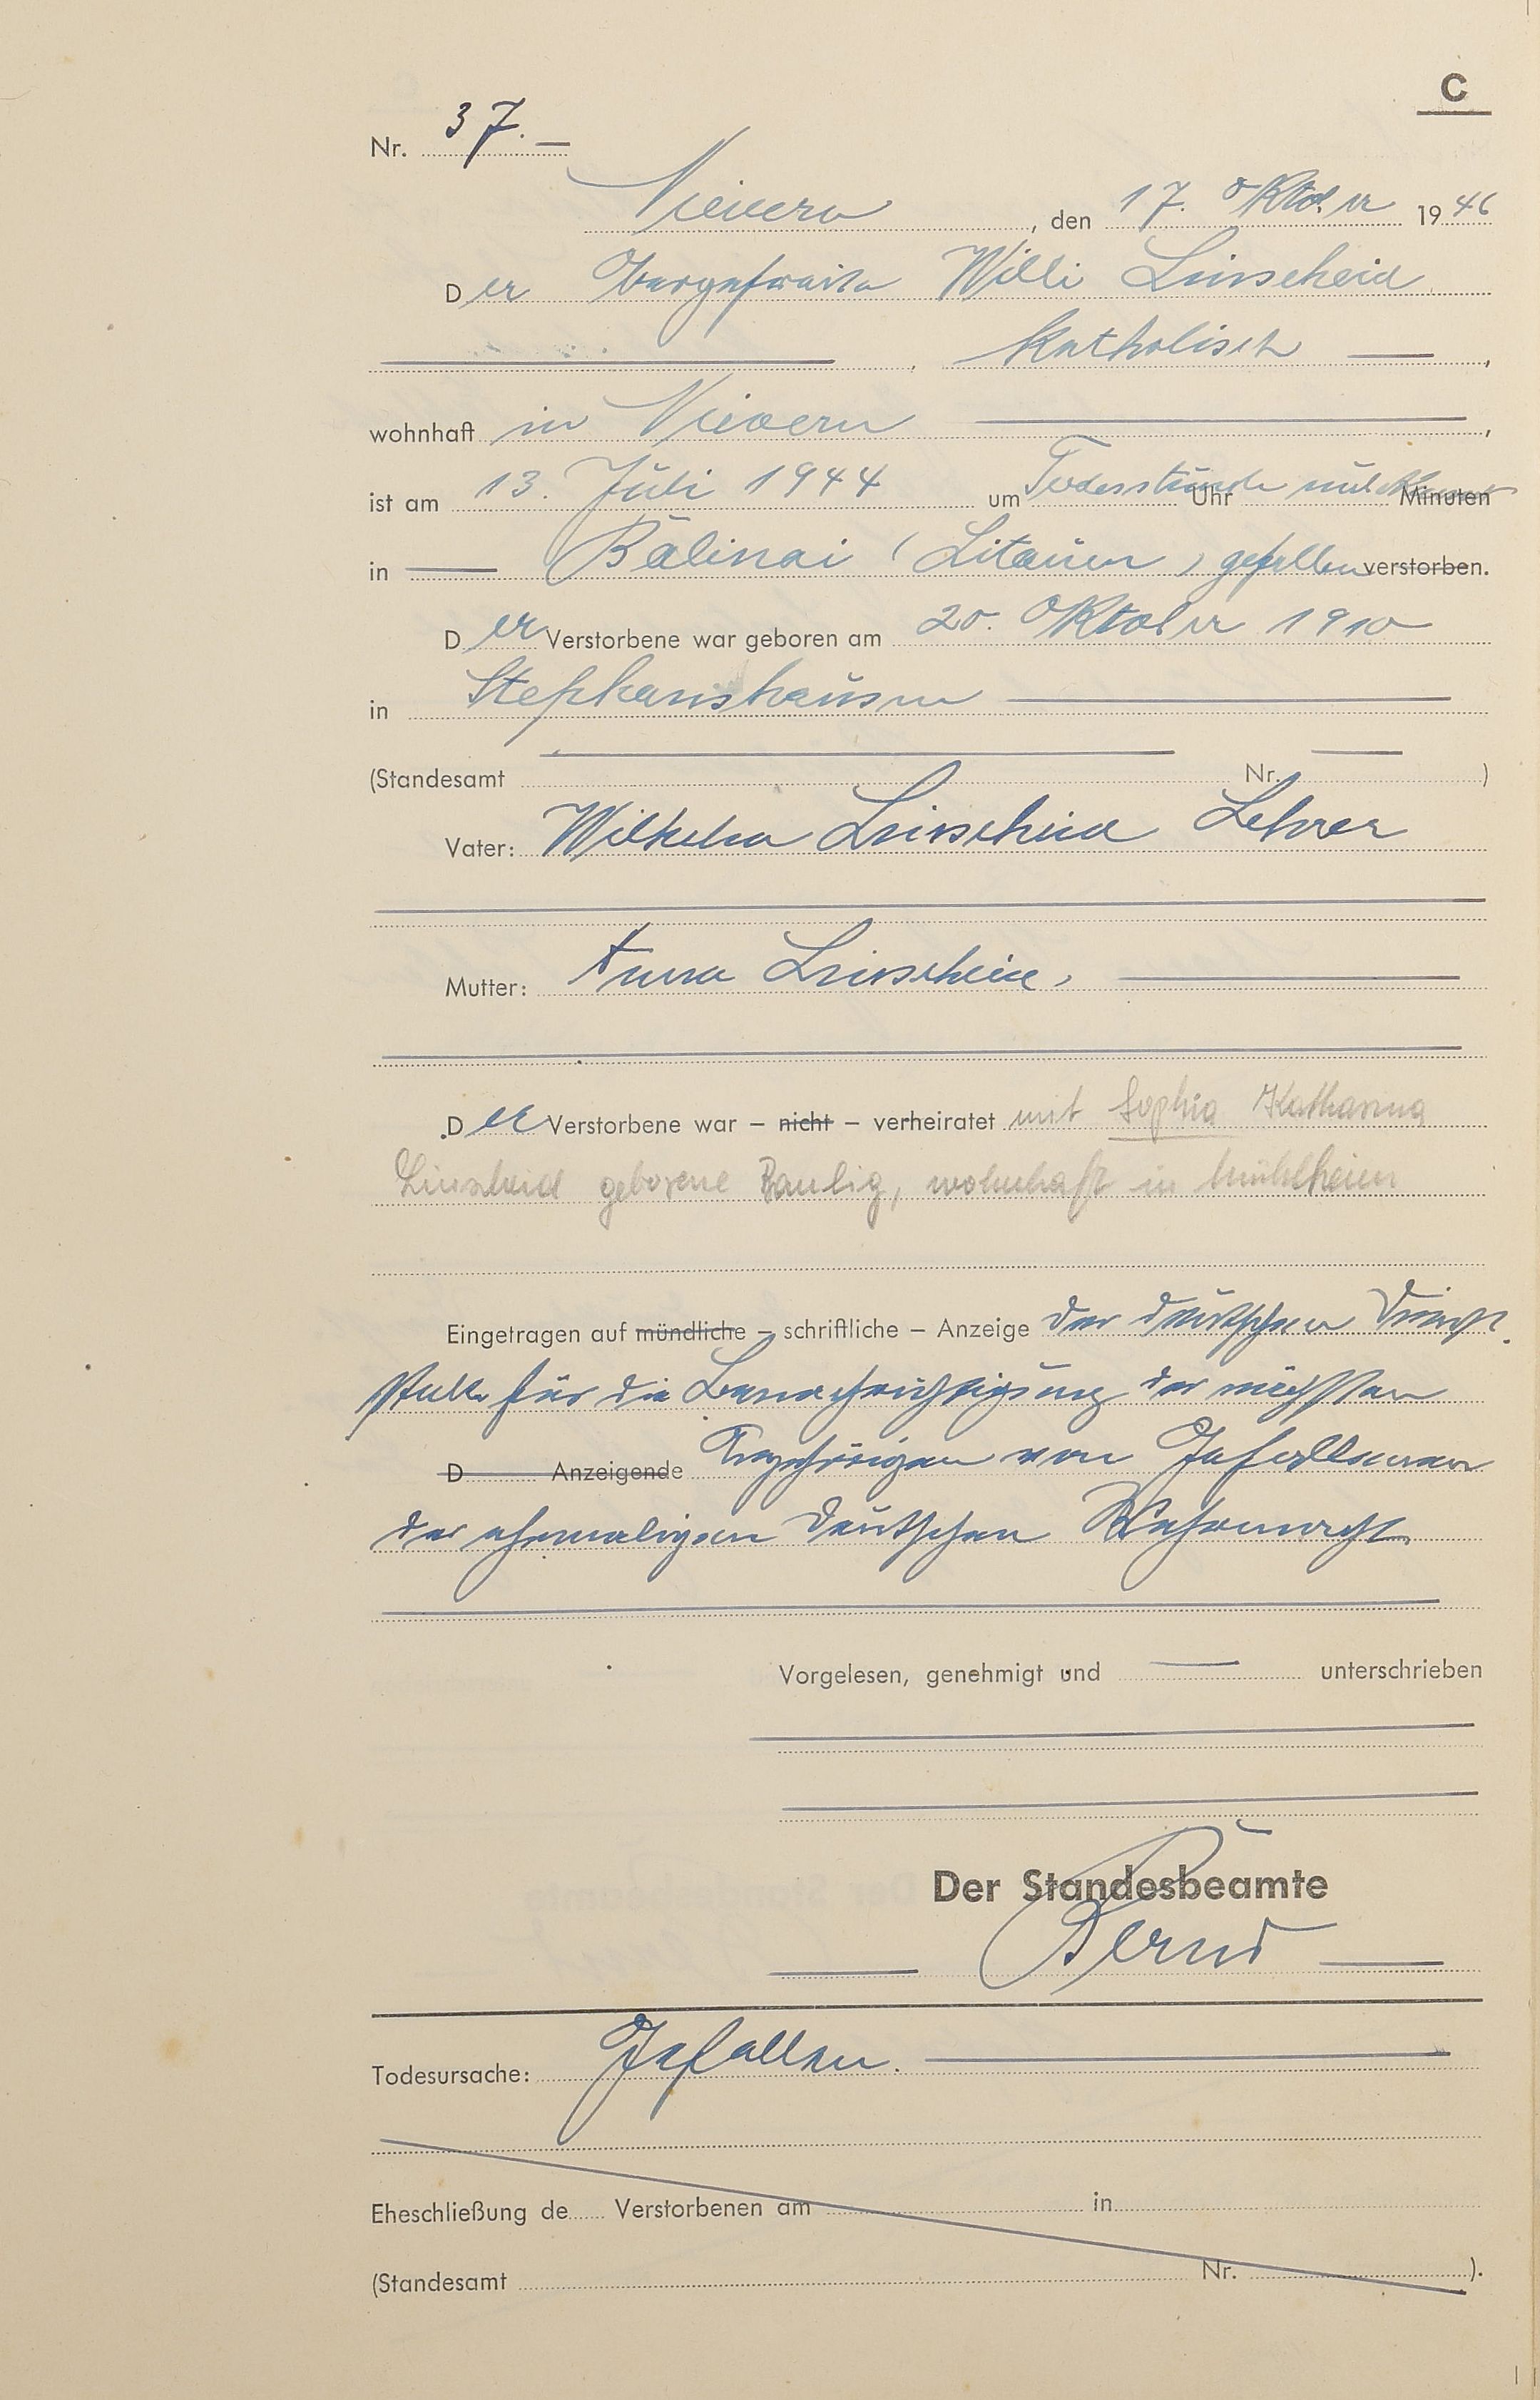 C
Nr. 37. —
Nievern, den 17. Oktober 1946
Der Obergefreite Willi Linscheid
—, katholisch —,
wohnhaft in Nievern —,
ist am 13. Juli 1944 um Todesstunde Uhr unbekannt Minuten
in — Bälinai (Litauen) gefallen verstorben.
Der Verstorbene war geboren am 20. Oktober 1910
in Stephanshausen —
(Standesamt — Nr. — )
Vater: Wilhelm Linscheid Lehrer
Mutter: Anna Linscheid, —
Der Verstorbene war – nicht – verheiratet mit Sophia Katharina
Linscheid geborene Paulig, wohnhaft in Mühlheim
Eingetragen auf mündliche – schriftliche – Anzeige der deutschen Dienst-
stelle für die Benachrichtigung der nächsten
D Anzeigende Angehörigen von Gefallenen
der ehemaligen deutschen Wehrmacht.
Vorgelesen, genehmigt und — unterschrieben
Der Standesbeamte
—  —
Todesursache: Gefallen. —
Eheschließung de Verstorbenen am in
(Standesamt Nr. ).